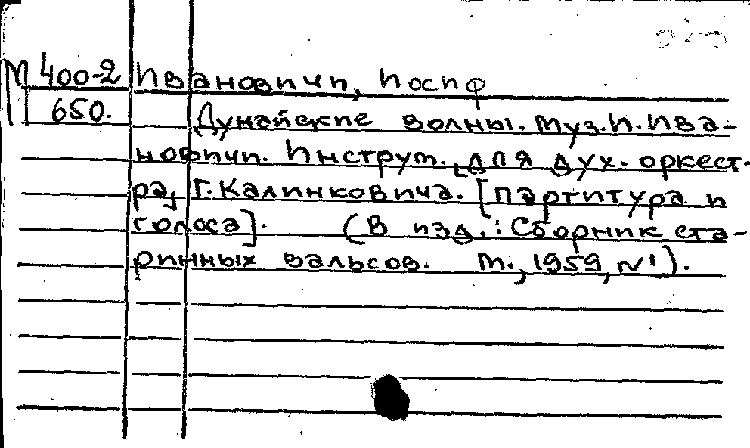 М 400-2 Ивановичи, Иосиф
650.
Дунайские волны. Муз. И. Ива-
новичи. Инструм. для дух. оркест-
ра, Г. Калинковича. [Партитура и
голоса]. (В изд.: Сборник ста-
ринных вальсов. М., 1959, №1).